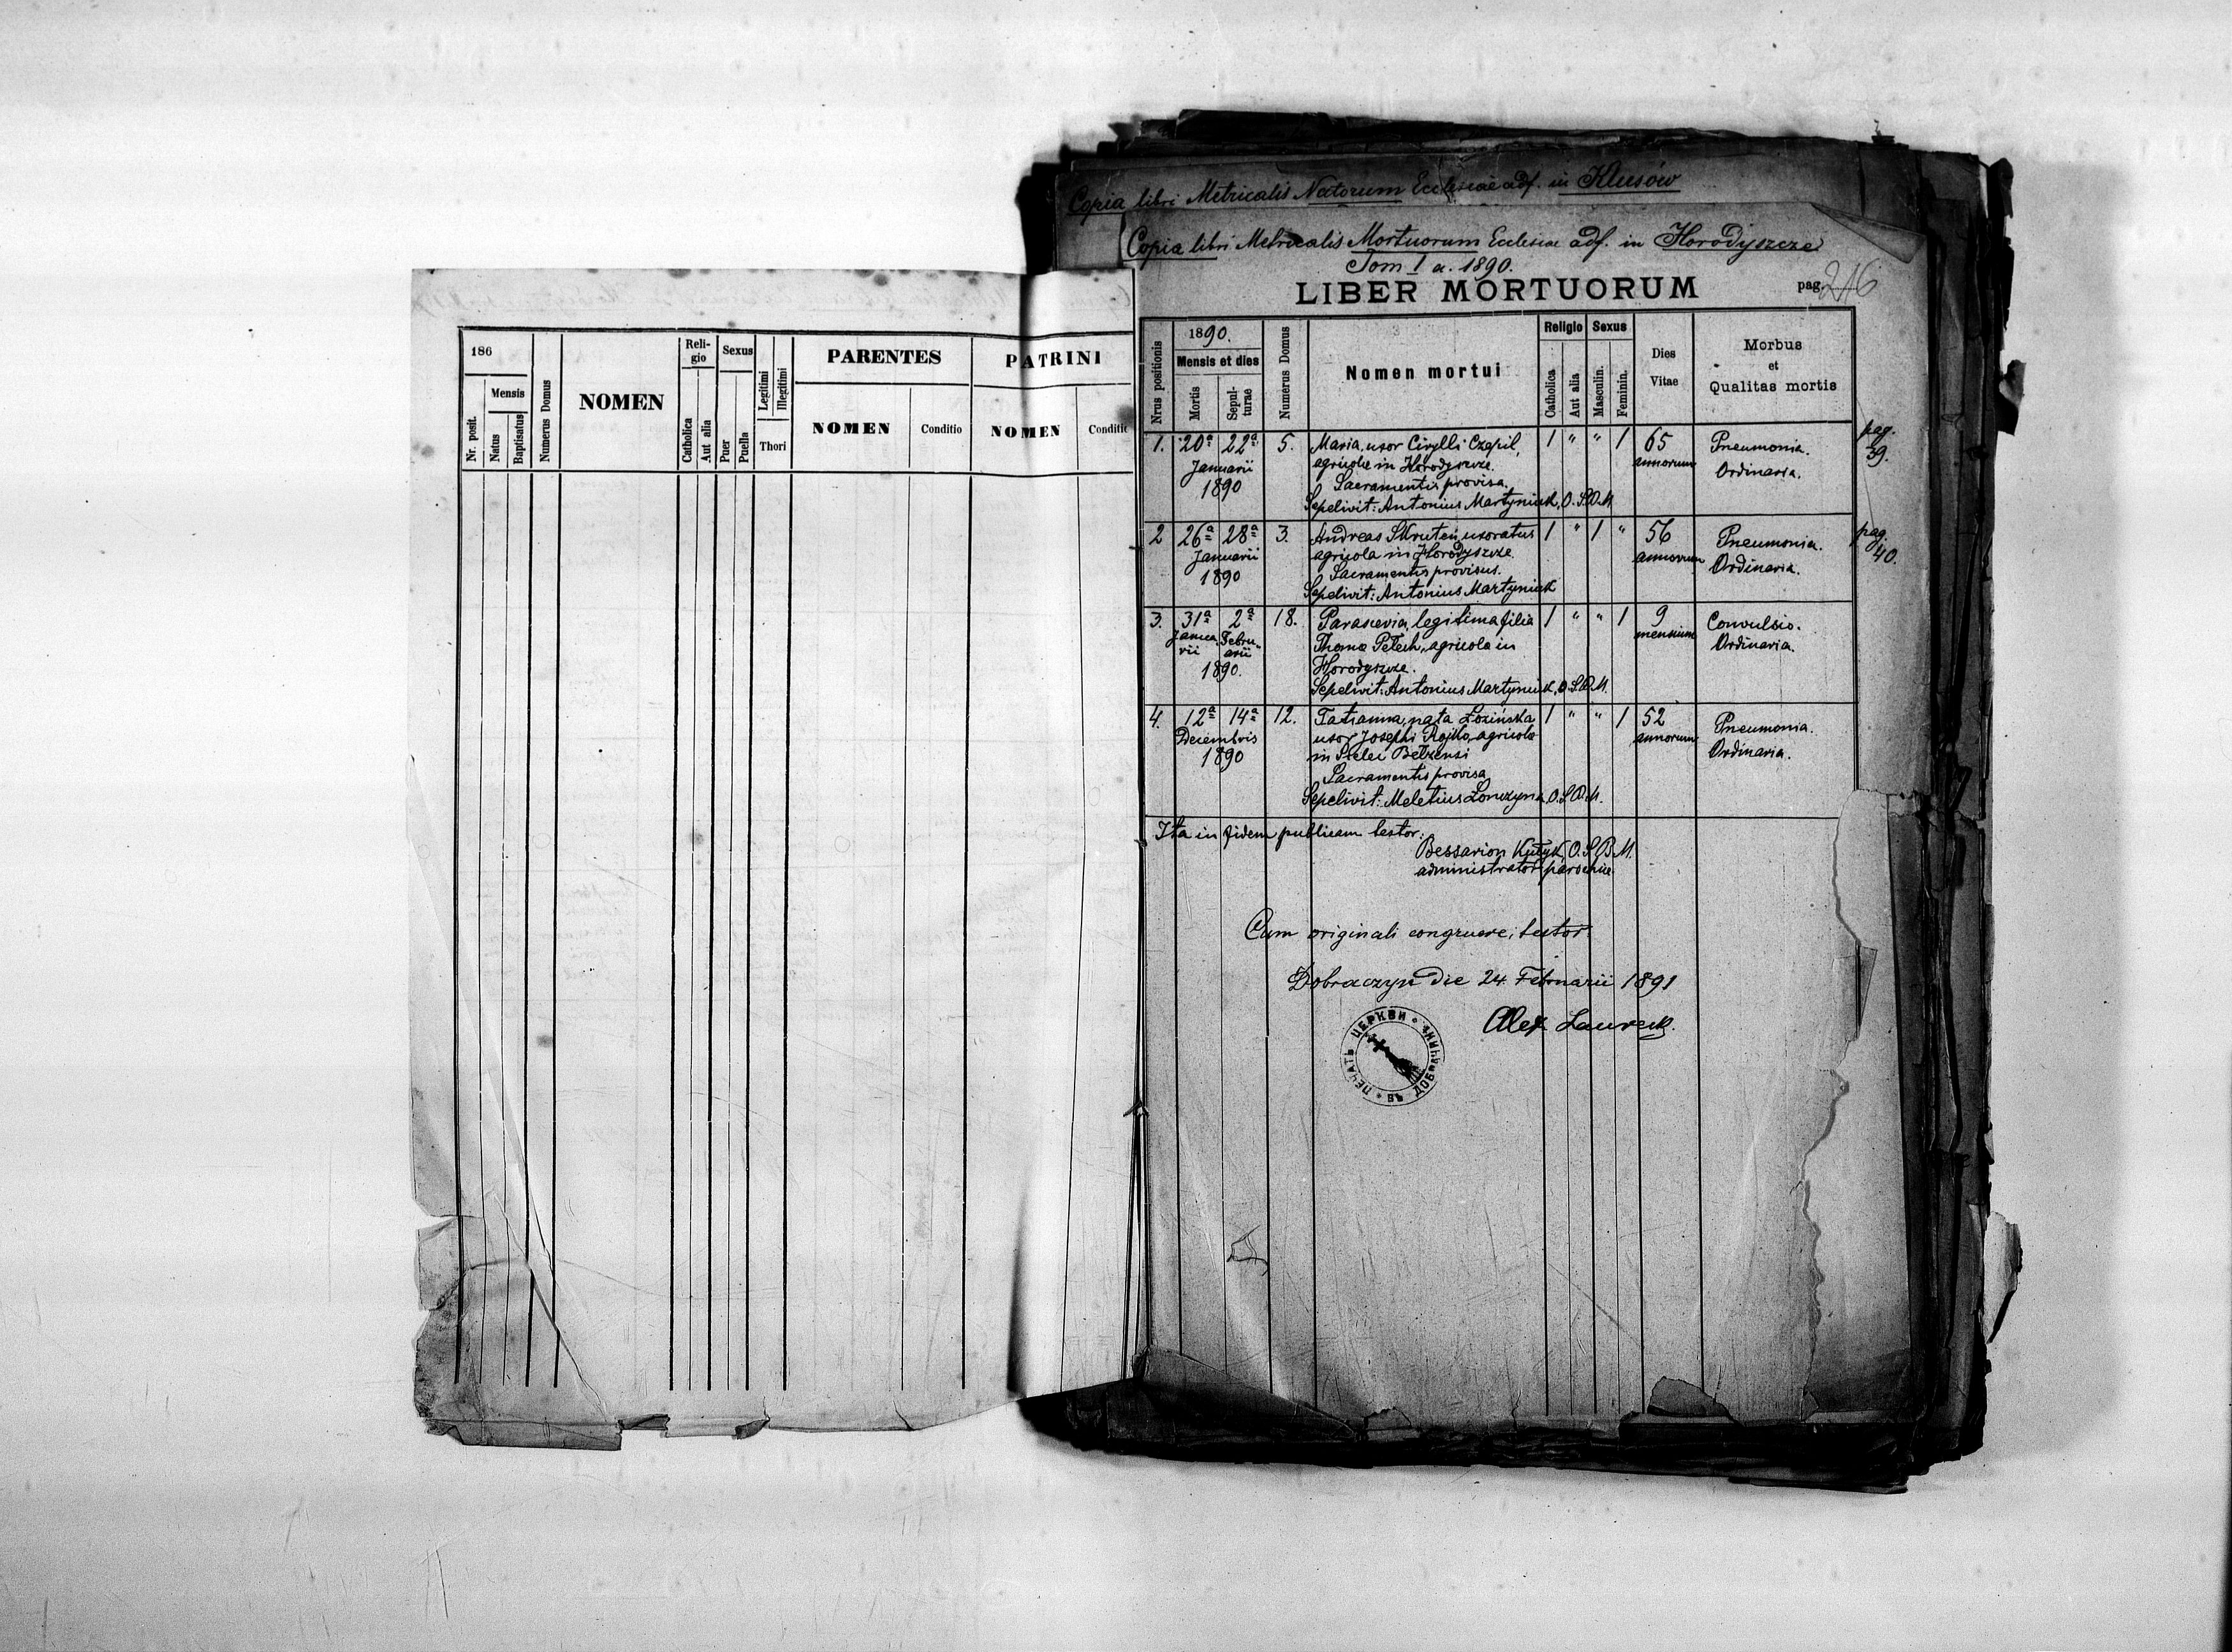 186
Nr. posit.
Mensis
Natus
Baptisatus
Numerus Domus
NOMEN
Reli-
gio
Catholica
Aut alia
Sexus
Puer
Puella
Legitimi
Illegitimi
Thori
PARENTES
NOMEN
Conditio
PATRINI
NOMEN
Conditio
Copia libri Metricalis Natorum Ecclesiae adf. in Klusów
Copia libri Metricalis Mortuorum Ecclesiae adf. in Horodyszcze
Tom I a. 1890.
LIBER MORTUORUM
pag. 216
Nrus positionis
1890.
Mensis et dies
Mortis
Sepul-
turae
Numerus Domus
Nomen mortui
Religio
Catholica
Aut alia
Sexus
Masculin.
Feminin.
Dies
Vitae
Morbus
et
Qualitas mortis
1. 20a 22a 5. Maria, uxor Cirylli Czapil, 1 " " 1 65 Pneumonia. pag.
Januarii agricolae in Horodyszcze. annorum Ordinaria. 39.
1890 Sacramentis provisa.
Sepelivit: Antonius Martyniuk, O.S.B.M.
2 26a 28a 3. Andreas Skruteń, uxoratus 1 " 1 " 56 Pneumonia. pag.
Januarii agricola in Horodyszcze. annorum Ordinaria. 40.
1890 Sacramentis provisus.
Sepelivit: Antonius Martyniuk
3. 31a 2a 18. Parascevia, legitima filia 1 " " 1 9 Convulsio.
Janua Febru Thomae Pelech, agricola in mensium Ordinaria.
rii arii Horodyszcze.
1890.
Sepelivit: Antonius Martyniuk, O.S.B.M.
4. 12a 14a 12. Tatianna, nata Łozińska 1 " " 1 52 Pneumonia.
Decembris uxor Josephi Rojko, agricolae annorum Ordinaria.
1890 in Sielec Belzensi
Sacramentis provisa
Sepelivit: Meletius Łonczyna, O.S.B.M.
Ita in fidem publicam testor:
Bessarion Kułyk, O.S.B.M.
administrator parochiae
Cum originali congruere, testor.
Dobraczyn die 24 Februarii 1891
Alex Laureck
ПЕЧАТЬ ЦЕРКВИ
ВЪ ДОБРАЧИНѢ